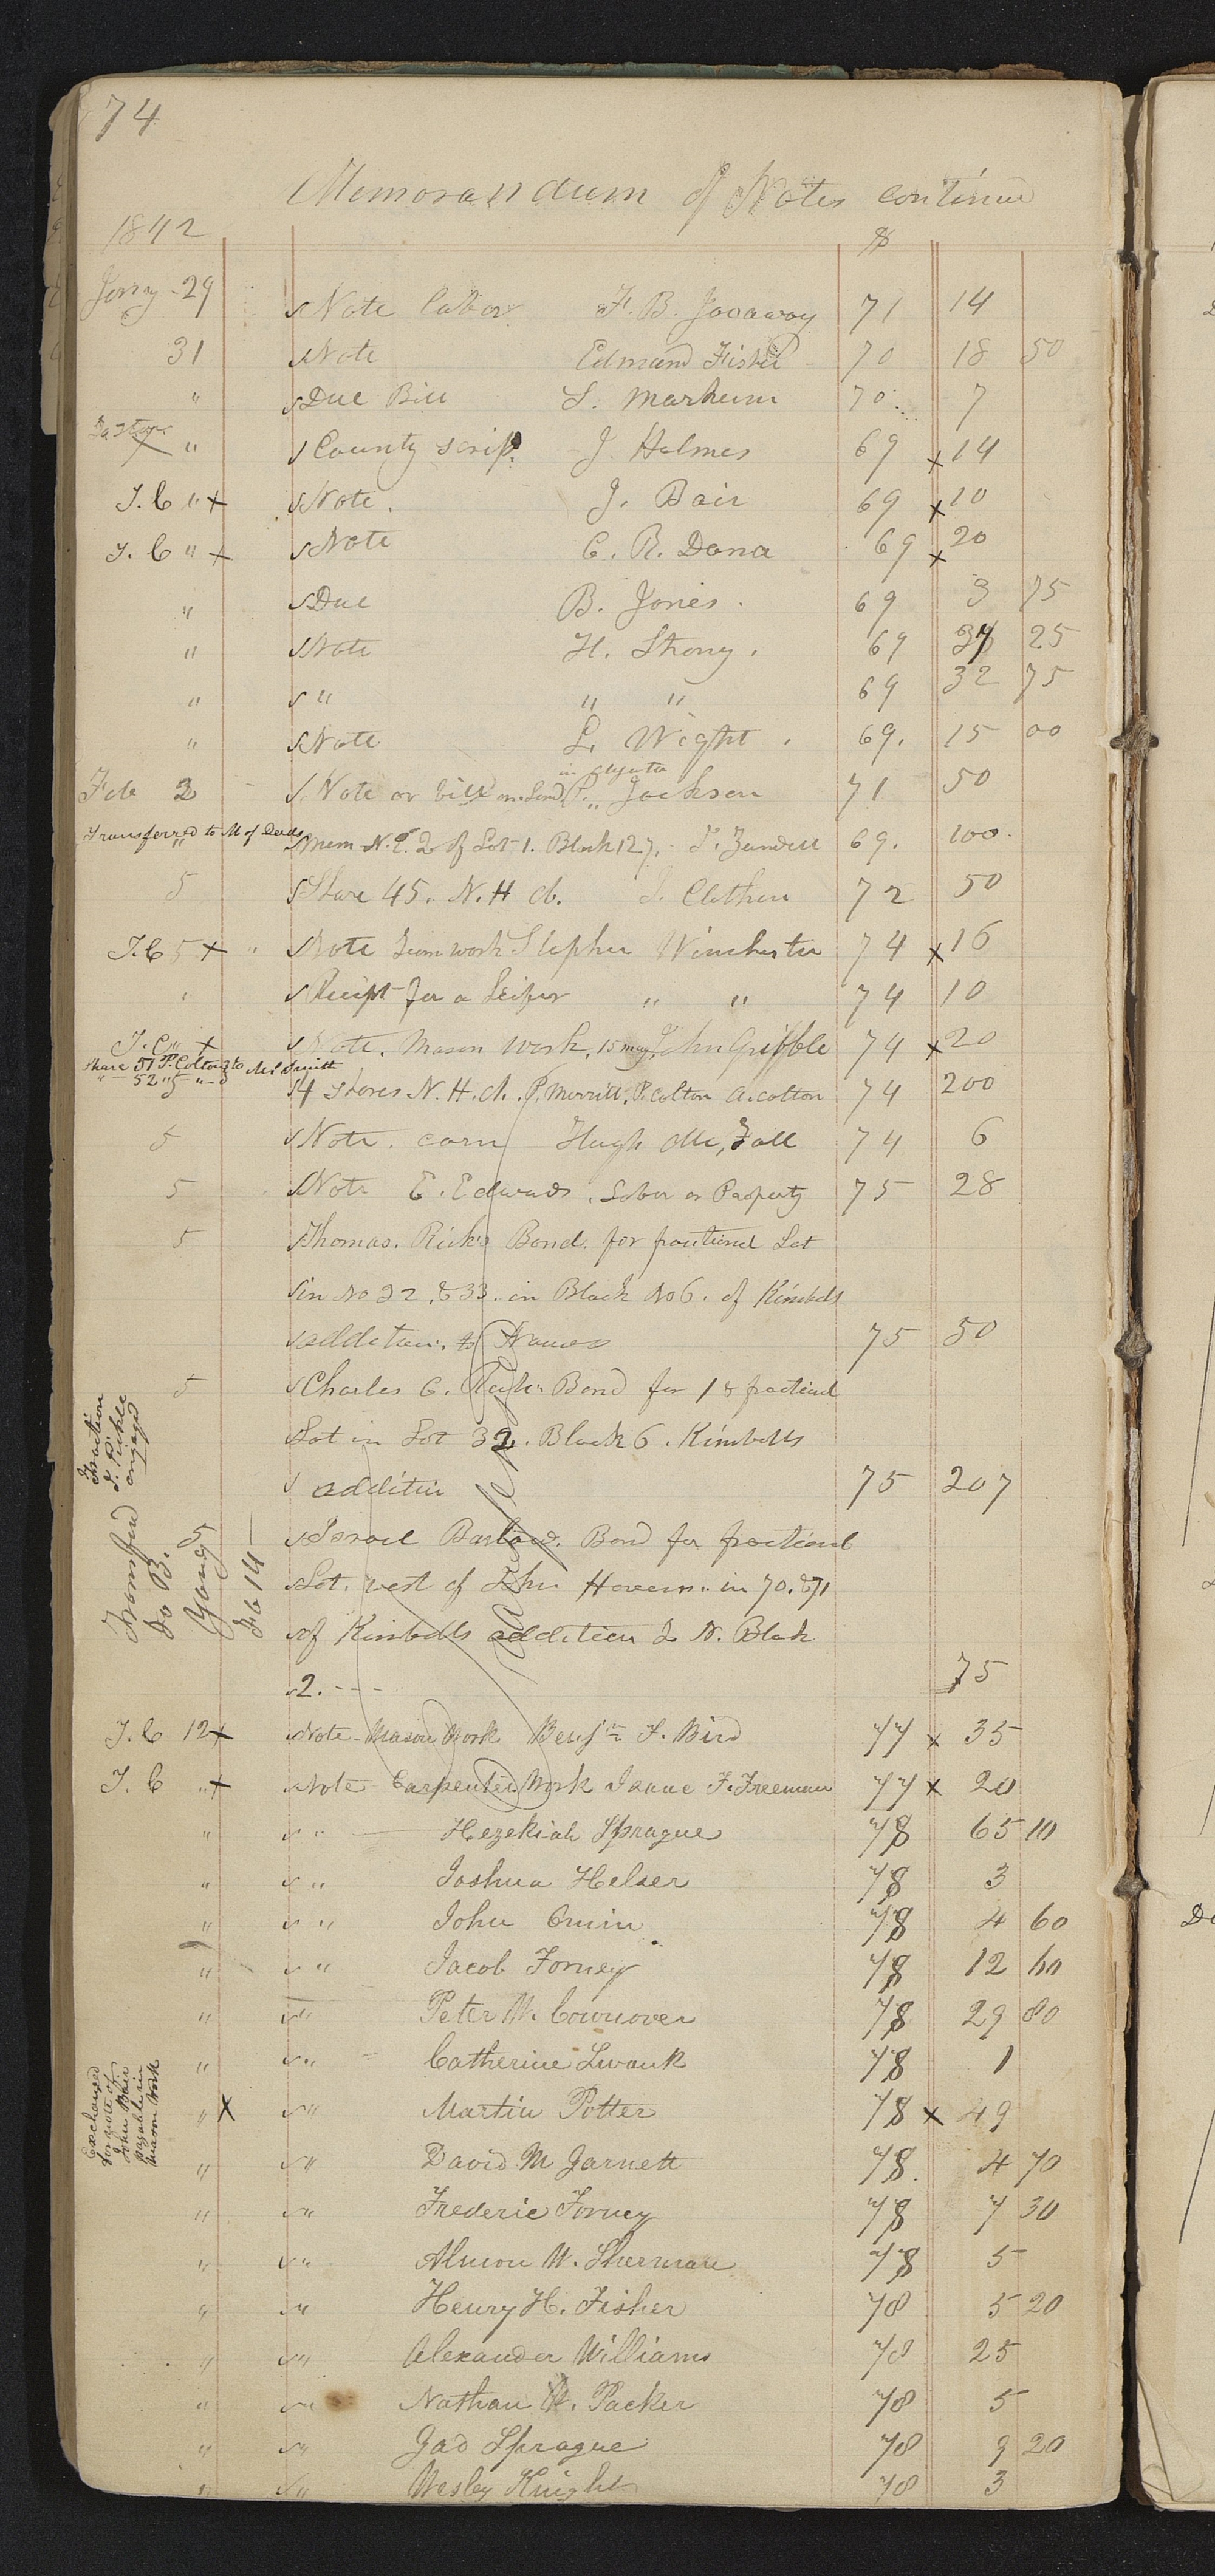 74
Memorandum of Notes continued
1842 $
Jany 29 Note Labor F. B. Jacaway 71 14
31 Note Edmund Fisher 70 18 50
" Due Bill S. Markum 70 7
" County scrip. J. Holmes 69 x 14
T. C " x Note. J. Bair 69 x 10
T. C " x Note C. R. Dana 69 x 20
" Due B. Jones. 69 3 75
" Note H. Strong. 69 25
" " " " 69 32 75
" Note L. Wight. 69. 15 00
Feb 2 Note or bill on P. Jackson 71 50
Transferred to M of Deeds " mem N. E. 2 of Lot 1. Block 127, 69. 100
5 Share 45. N. H ch. 72 50
T. C 5 x " Note Team work Stephen Winchester 74 x 16
" Receipt for a Heifer " " 74 10
T. C " x Note. Mason work, 15 may, John Gribble 74 x 20
share 51 P. Colton to M. Smith
" 52 " "
5 4 shares N. H. ch. P. Merrill, P. Colton A. Colton 74 200
5 Note. corn Hugh Fall 74 6
5 Note E. Edwards. Labor or Property 75 28
5 Thomas. Rich's Bond. for fractional Lot
in No 32, & 33. in Block No 6. of Kimballs
addition. to Nauvoo 75 50
5 Charles C. Rich's Bond for 1 & fractional
Lot in Lot 32. Block 6. Kimballs
addition 75 207
Fraction
engaged
5 Israel Barlow. Bond for fractional
Lot. west of John Havens. in 70. & 71
of Kimballs addition to N. Block
2. - - - 75
Transferred
to B.
Young
Feb 14
Transferred
T. C 12 x Note Mason Work Benjn F. Bird 77 x 35
T. C " x Note Carpenter Work Isaac F. Freeman 77 x 20
" " Hezekiah Sprague 78 65 10
" " Joshua Helser 78 3
" " John 78 4 60
" " Jacob Forney 78 12 60
" " Peter W. Cownover 78 29 80
" " Catherine Swank 78 1
" x " Martin Potter 78 x 49
Exchanged
for note of
John Bair
payable in
Mason Work
" " David M Garnett 78. 4 70
" " Frederic Forney 78 7 30
" " Almon W. Sherman 78 5
" " Henry H. Fisher 78 5 20
" " Alexander Williams 78 25
" " Nathan W. Packer 78 5
" " Gad Sprague 78 9 20
" " Wesley Knight 78 3